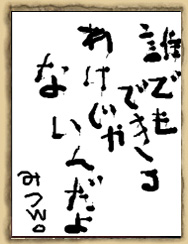 誰でも
できる
わけじゃ
ないんだよ
みつを